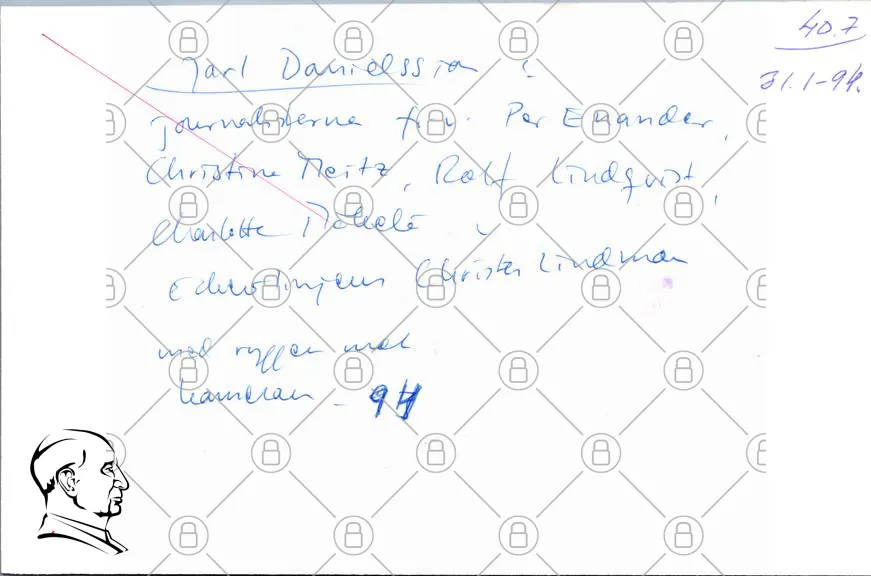 40.7
31.1-94.
Jarl Danielsson
journalisterna fr. v. Per Enander,
Christine Meitz, Rolf Lindqvist,
Charlotte Mäkelä
Christer Lindman
med ryggen mot
kameran - 94